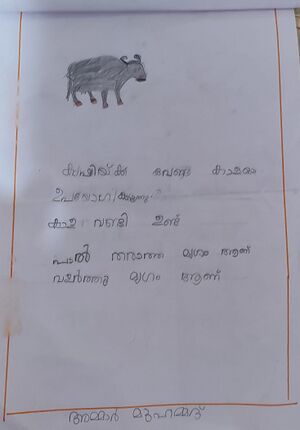 കൃഷിയ്ക്ക് വേണ്ടി കാളയെ
ഉപയോഗിക്കുന്നു.
കാള വണ്ടി ഉണ്ട്
പാൽ തരാത്ത മൃഗം ആണ്
വളർത്തു മൃഗം ആണ്
അമ്മാർ മുഹമ്മദ്